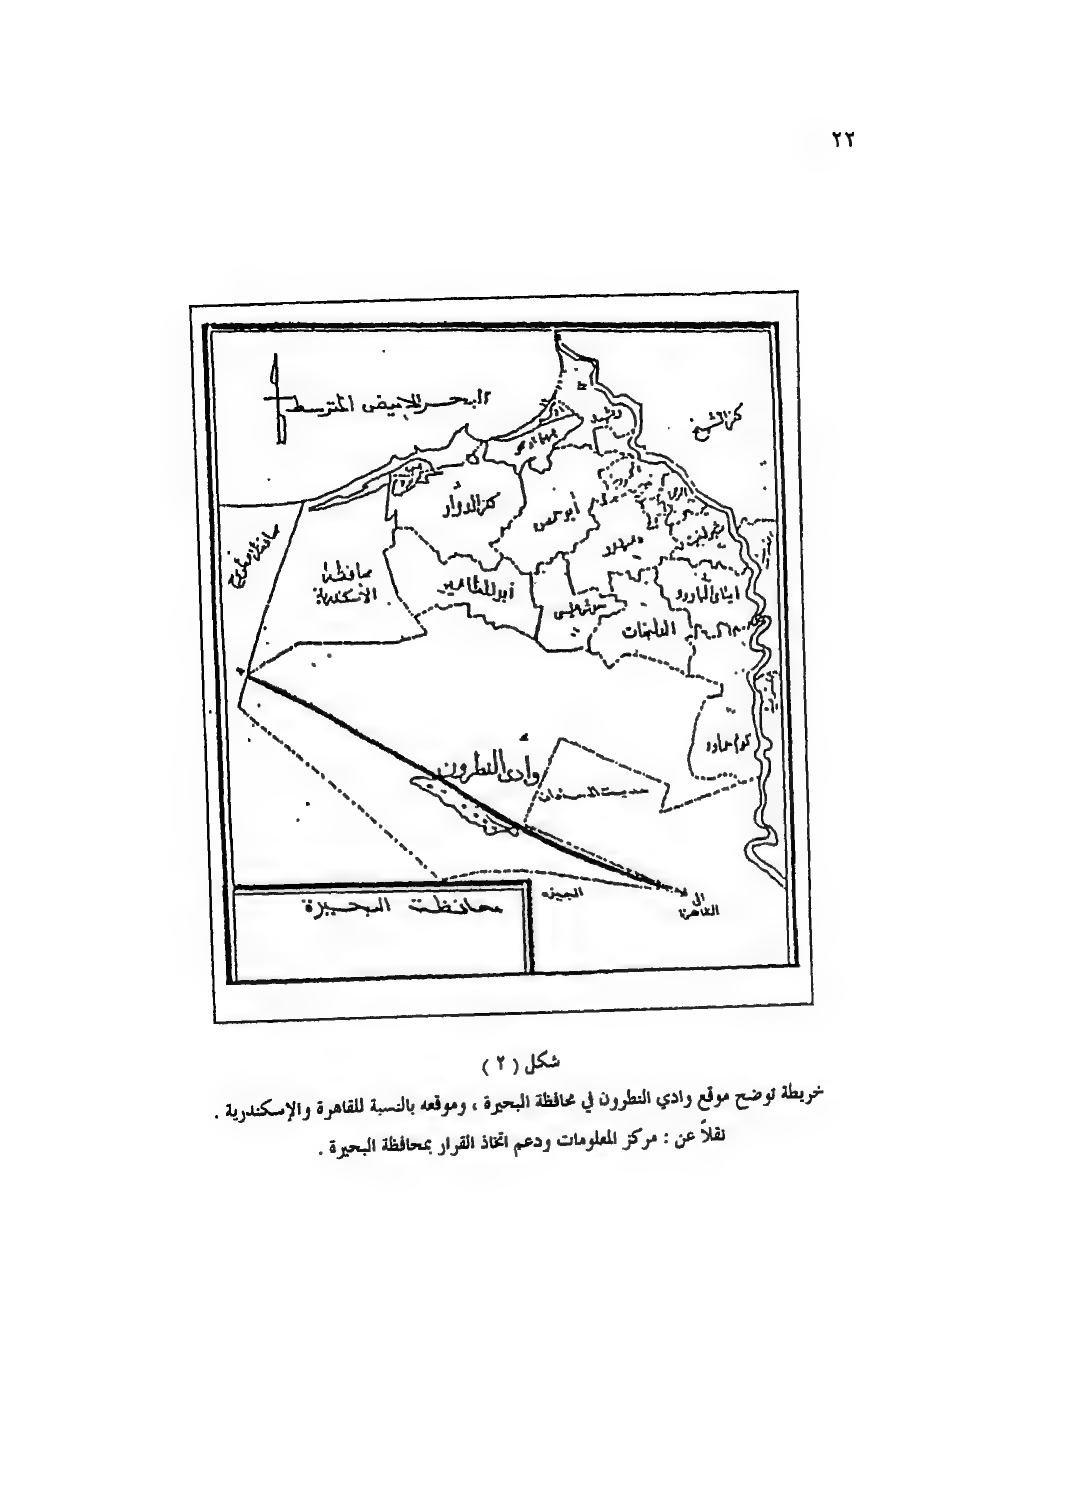 ٢٢
البحر الأبيض المتوسط
كفر الشيخ
رشيد
كفر الدوار
أبو حمص
دمنهور
محافظة
الأسكندرية
أبو المطامير
حوش عيسى
ايتاى البارود
الدلنجات
كوم حمادة
وادى النطرون
الجيزة
الى
القاهرة
محافظة البحيرة
شكل ( ٢ )
خريطة توضح موقع وادي النطرون في محافظة البحيرة ، وموقعه بالنسبة للقاهرة والإسكندرية .
نقلاً عن : مركز المعلومات ودعم اتخاذ القرار بمحافظة البحيرة .